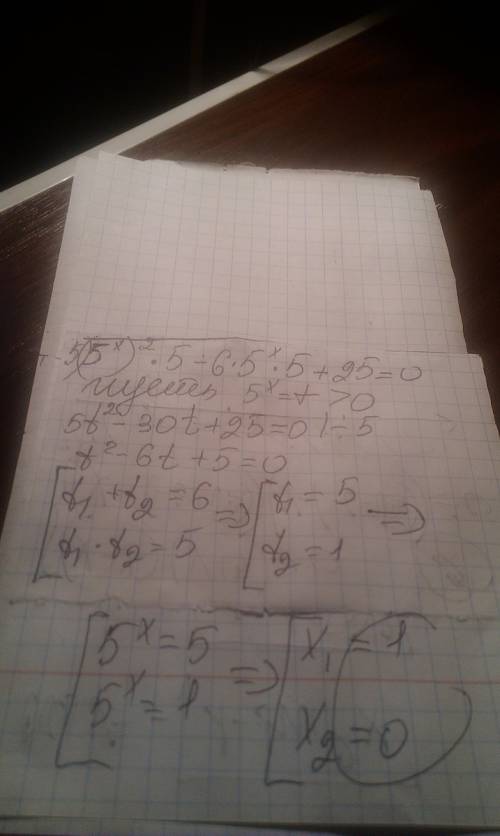 (5^x)^2 · 5 - 6 · 5^x · 5 + 25 = 0
пусть 5^x = t > 0
5t^2 - 30t + 25 = 0 | ÷ 5
t^2 - 6t + 5 = 0
[ t_1 + t_2 = 6 => [ t_1 = 5 =>
t_1 · t_2 = 5 t_2 = 1
[ 5^x = 5 => [ x_1 = 1
5^x = 1 x_2 = 0